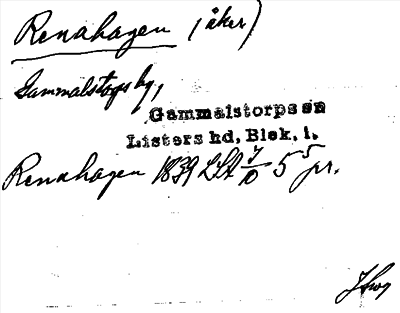 Renahagen (åker)
Gammalstorps by,
Gammalstorps sn
Listers hd, Blek. l.
Renahagen 1839 LSA 7/10 5 pr.